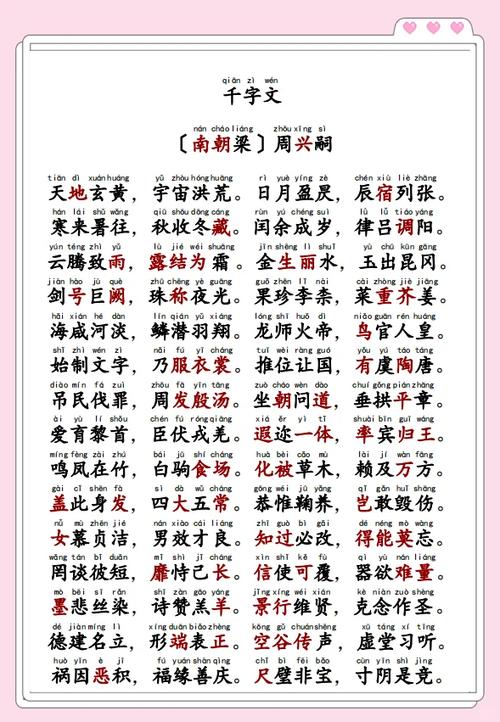 qiān zì wén
千字文
nán cháo liáng zhōu xīng sì
〔南朝梁〕周兴嗣
tiān dì xuán huáng yǔ zhòu hóng huāng rì yuè yíng zè chén xiù liè zhāng
天地玄黄，宇宙洪荒。日月盈昃，辰宿列张。
hán lái shǔ wǎng qiū shōu dōng cáng rùn yú chéng suì lǜ lǚ tiáo yáng
寒来暑往，秋收冬藏。闰余成岁，律吕调阳。
yún téng zhì yǔ lù jié wéi shuāng jīn shēng lì shuǐ yù chū kūn gāng
云腾致雨，露结为霜。金生丽水，玉出昆冈。
jiàn hào jù què zhū chēng yè guāng guǒ zhēn lǐ nài cài zhòng jiè jiāng
剑号巨阙，珠称夜光。果珍李柰，菜重芥姜。
hǎi xián hé dàn lín qián yǔ xiáng lóng shī huǒ dì niǎo guān rén huáng
海咸河淡，鳞潜羽翔。龙师火帝，鸟官人皇。
shǐ zhì wén zì nǎi fú yī cháng tuī wèi ràng guó yǒu yú táo táng
始制文字，乃服衣裳。推位让国，有虞陶唐。
diào mín fá zuì zhōu fā yīn tāng zuò cháo wèn dào chuí gǒng pián zhāng
吊民伐罪，周发殷汤。坐朝问道，垂拱平章。
ài yù lí shǒu chén fú róng qiāng xiá ěr yì tǐ shuài bīn guī wáng
爱育黎首，臣伏戎羌。遐迩一体，率宾归王。
míng fèng zài zhú bái jū shí chǎng huà bèi cǎo mù lài jí wàn fāng
鸣凤在竹，白驹食场。化被草木，赖及万方。
gài cǐ shēn fà sì dà wǔ cháng gōng wéi jū yǎng qǐ gǎn huǐ shāng
盖此身发，四大五常。恭惟鞠养，岂敢毁伤。
nǚ mù zhēn jié nán xiào cái liáng zhī guò bì gǎi dé néng mò wàng
女慕贞洁，男效才良。知过必改，得能莫忘。
wǎng tán bǐ duǎn mǐ shì jǐ cháng xìn shǐ kě fù qì yù nán liáng
罔谈彼短，靡恃己长。信使可覆，器欲难量。
mò bēi sī rǎn shī zàn gāo yáng jǐng xíng wéi xián kè niàn zuò shèng
墨悲丝染，诗赞羔羊。景行维贤，克念作圣。
dé jiàn míng lì xíng duān biǎo zhèng kōng gǔ chuán shēng xū táng xí tīng
德建名立，形端表正。空谷传声，虚堂习听。
huò yīn è jī fú yuán shàn qìng chǐ bì fēi bǎo cùn yīn shì jìng
祸因恶积，福缘善庆。尺璧非宝，寸阴是竞。